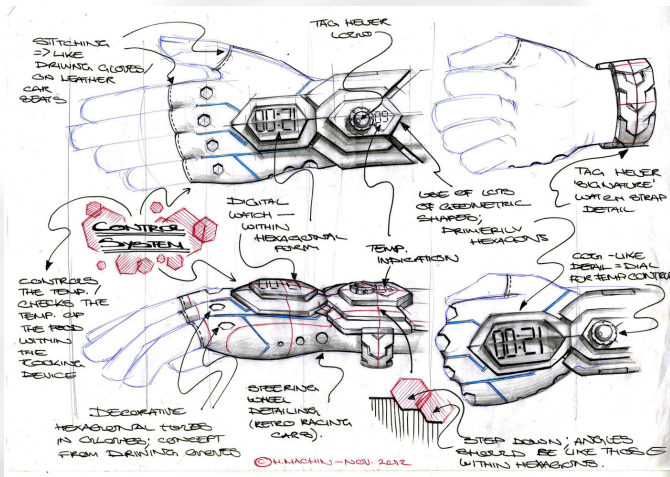 STITCHING
=> LIKE
DRIVING GLOVES/
ON LEATHER
CAR
SEATS
TAG HEUER
LOGO
00:21
TAG HEUER
'SIGNATURE'
WATCH STRAP
DETAIL
CONTROL
SYSTEM
DIGITAL
WATCH —
WITHIN
HEXAGONAL
FORM
USE OF LOTS
OF GEOMETRIC
SHAPES;
PRIMERILY
HEXAGONS
TEMP.
INDICATION
COG-LIKE
DETAIL = DIAL
FOR TEMP CONTROL
CONTROLS
THE TEMP. /
CHECKS THE
TEMP. OF
THE FOOD
WITHIN
THE
COOKING
DEVICE
00:21
DECORATIVE
HEXAGONAL HOLES
IN GLOVES; CONCEPT
FROM DRIVING GLOVES
STEERING
WHEEL
DETAILING
(RETRO RACING
CARS).
STEP DOWN; ANGLES
SHOULD BE LIKE THOSE
WITHIN HEXAGONS.
© H.MACHIN – NOV. 2012